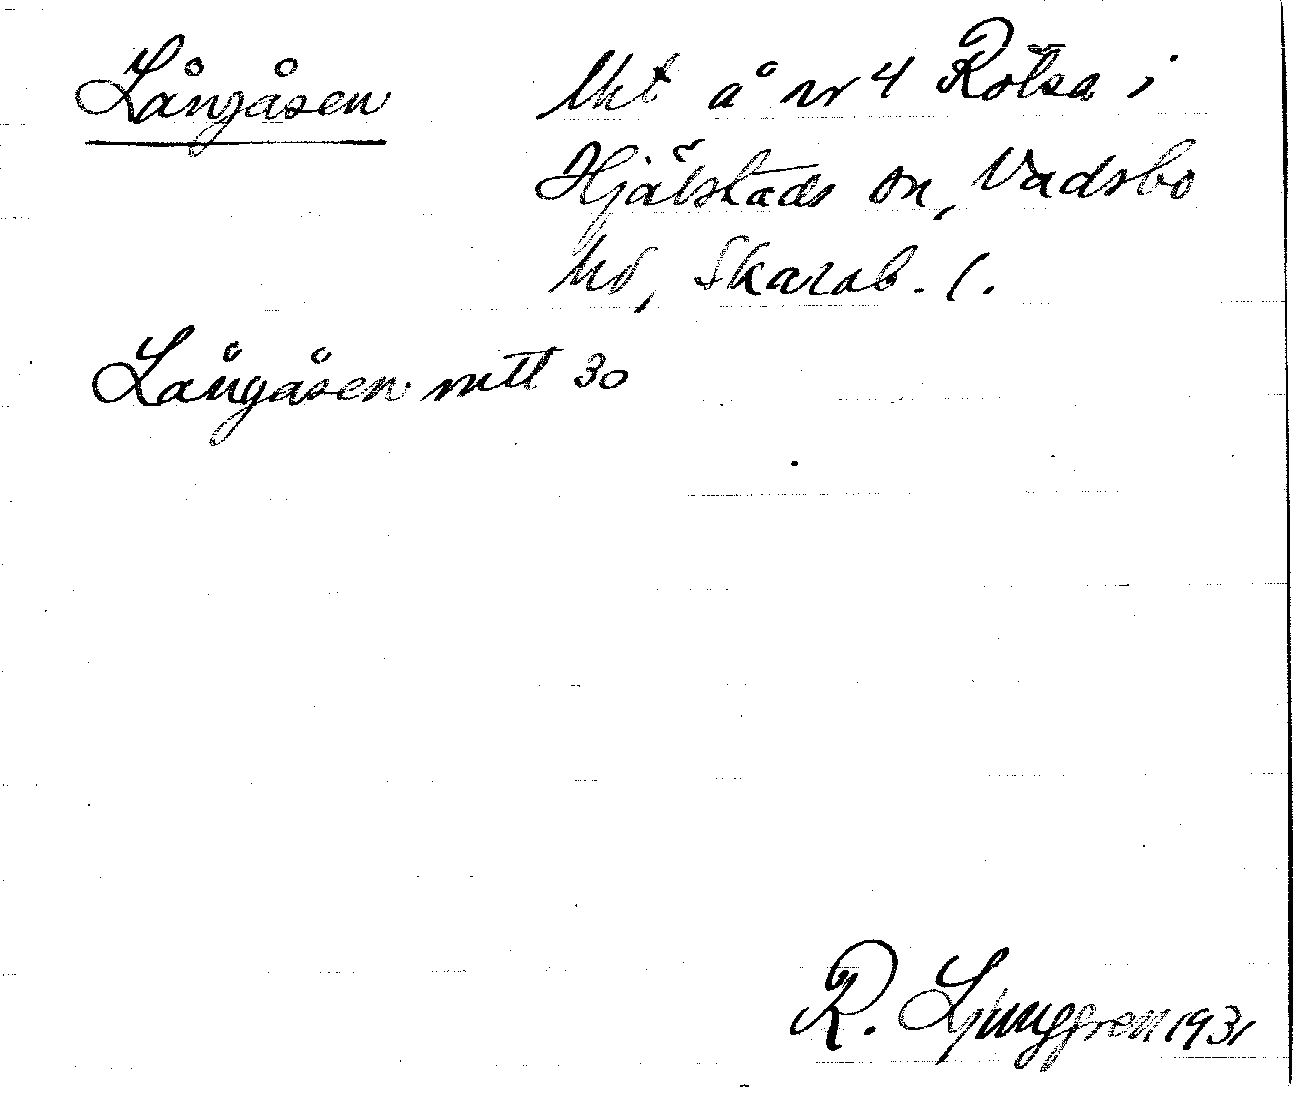 Långåsen
lht å nr 4 Rötsa i
Hjälstads sn, Vadsbo
hd, Skarab. l.
Långåsen mtl 30
R. Ljunggren 1931